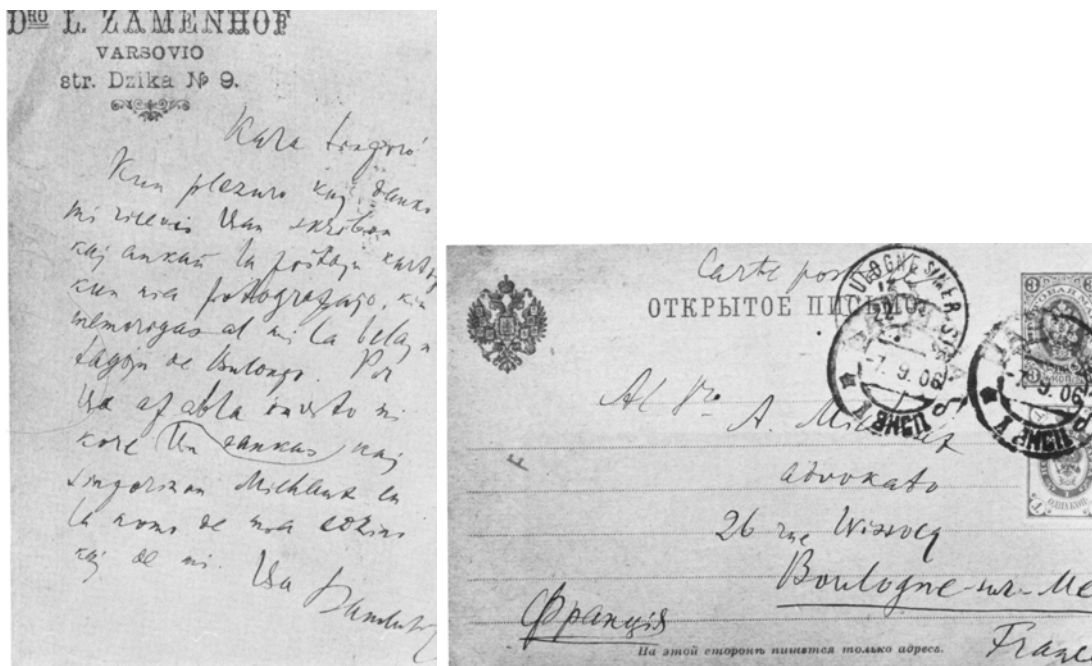 Dro L. ZAMENHOF
VARSOVIO
str. Dzika № 9.
Kara Sinjoro
Kun plezuro kaj danko
mi ricevis Vian skribon
kaj ankaŭ la poŝtajn kartojn
kun mia fotografaĵo, kiu
memorigas al mi la belajn
tagojn de Bulonjo. Por
Via afabla invito mi
kore Vin dankas kaj
Sinjorinon Michaux en
la nomo de mia edzino
kaj de mi. Via
Zamenhof
Carte pos
ОТКРЫТОЕ ПИСЬМО
BOULOGNE S MER
7. 9. 06
9. 06
Al Sro
A. Michaux
advokato
26 rue Wissocq
Boulogne-sur-Me
Франція
Franc
На этой сторонѣ пишется только адресъ.